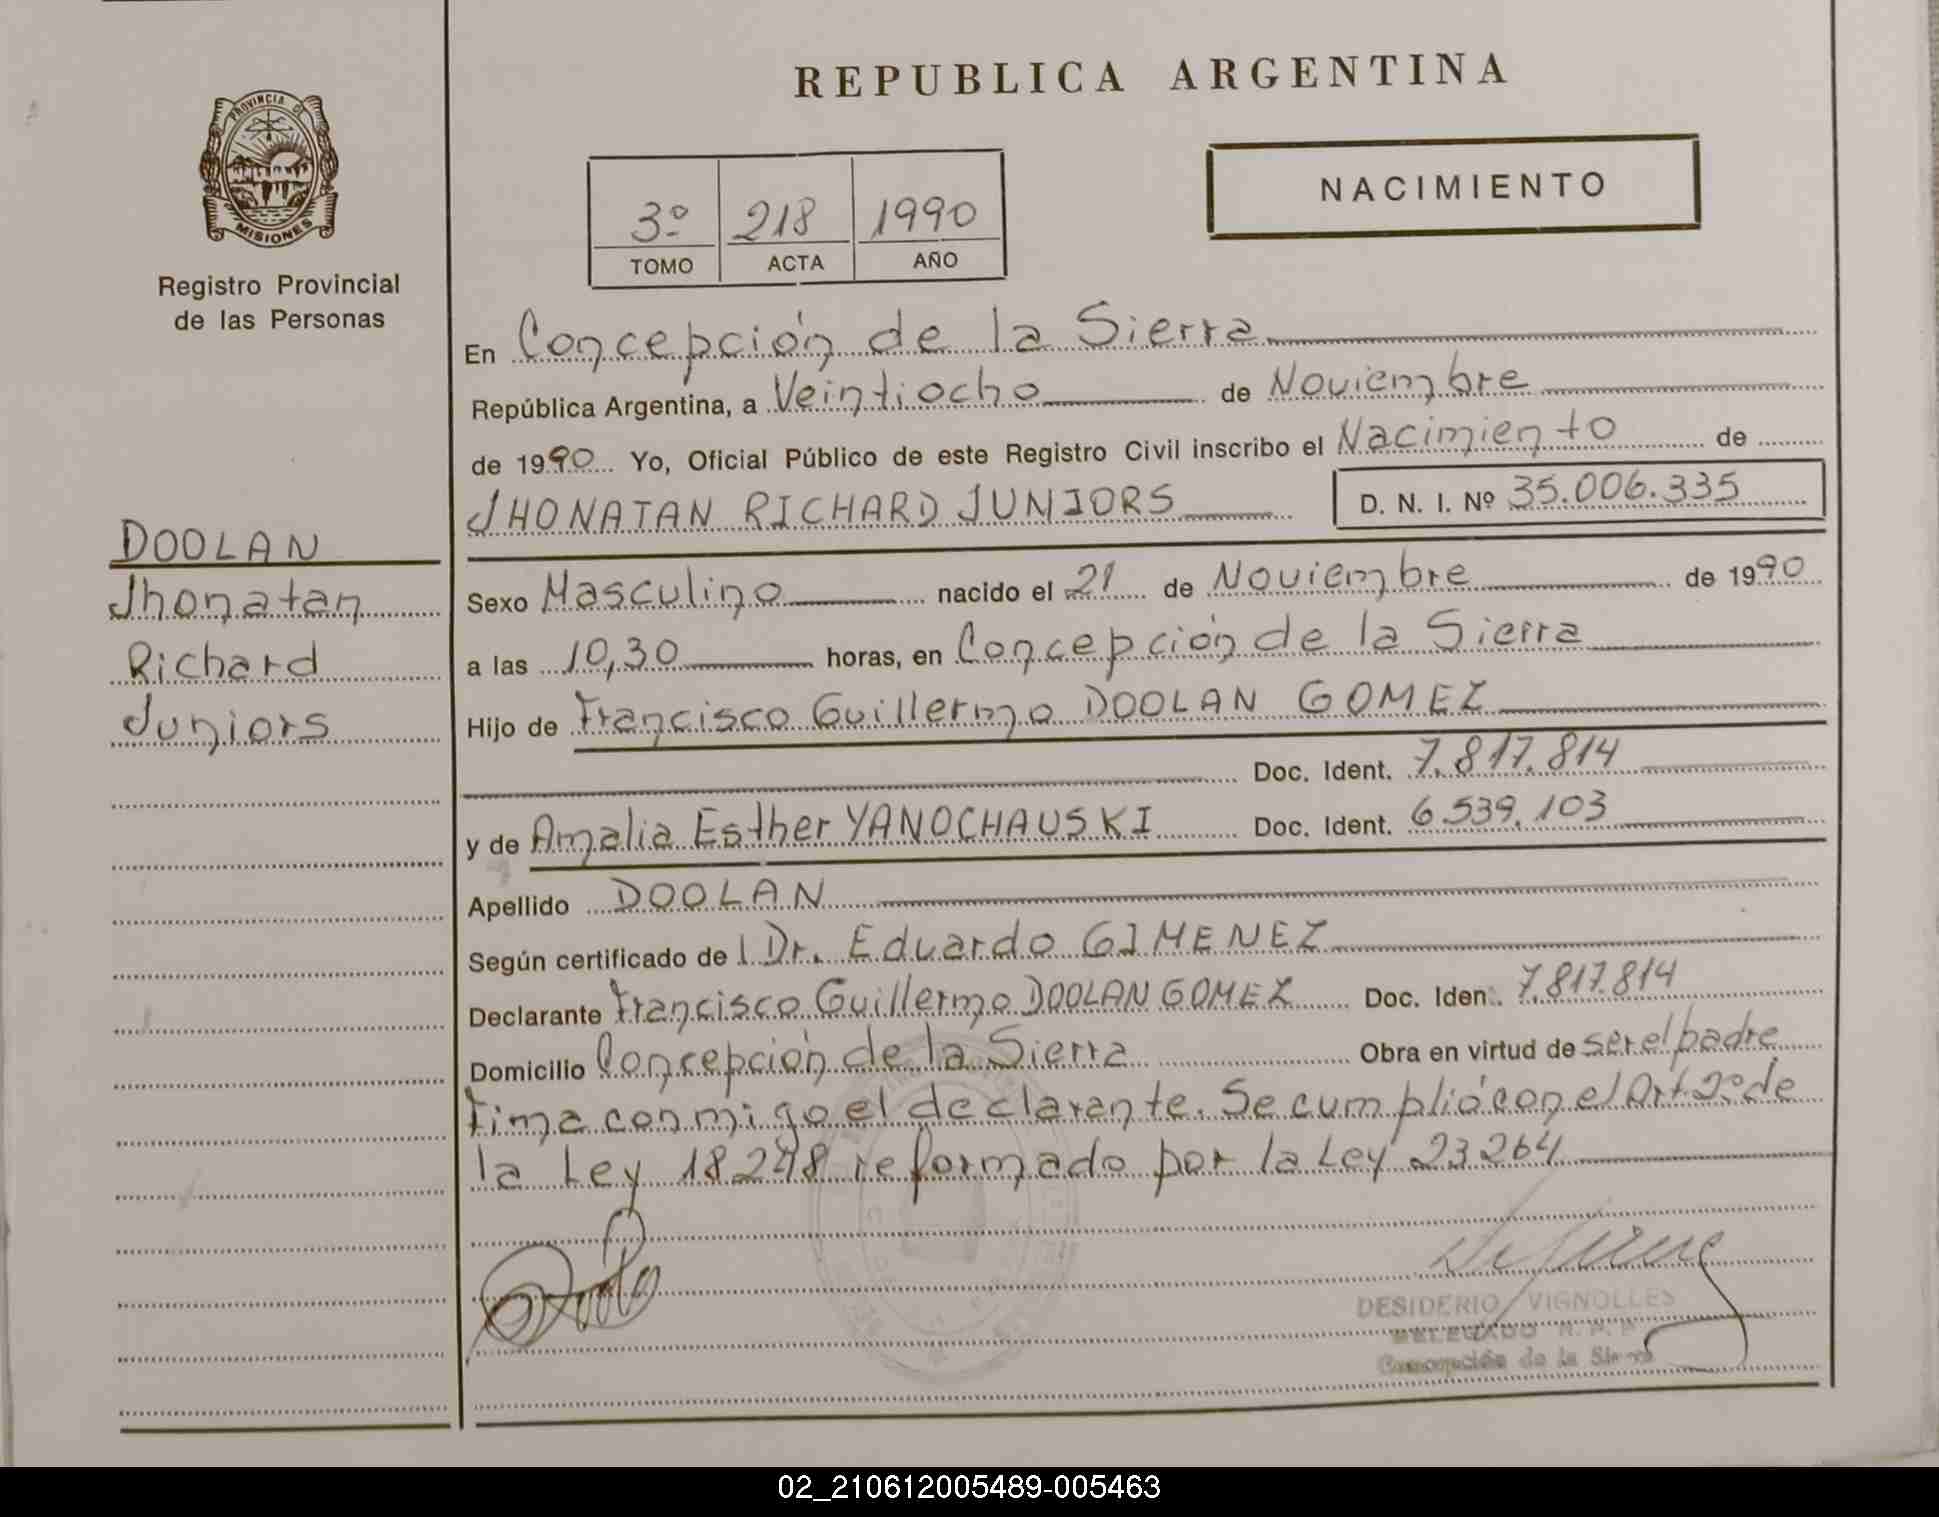 REPUBLICA ARGENTINA
PROVINCIA DE
MISIONES
Registro Provincial
de las Personas
3º 218 1990
TOMO ACTA AÑO
NACIMIENTO
En Concepción de la Sierra
República Argentina, a Veintiocho de Noviembre
de 1990 Yo, Oficial Público de este Registro Civil inscribo el Nacimiento de
JHONATAN RICHARD JUNIORS D. N. I. Nº 35.006.335
DOOLAN
Jhonatan
Richard
Juniors
Sexo Masculino nacido el 21 de Noviembre de 1990
a las 10,30 horas, en Concepción de la Sierra
Hijo de Francisco Guillermo DOOLAN GOMEZ
Doc. Ident. 7.817.814
y de Amalia Esther YANOCHAUSKI Doc. Ident. 6.539.103
Apellido DOOLAN
Según certificado de l Dr. Eduardo GIMENEZ
Declarante Francisco Guillermo DOOLAN GOMEZ Doc. Iden. 7.817.814
Domicilio Concepción de la Sierra Obra en virtud de ser el padre
Firma conmigo el declarante. Se cumplió con el Art 2º de
la Ley 18248 reformado por la Ley 23264
DESIDERIO VIGNOLLES
DELEGADO R. P. P.
Concepción de la Sierra
02_210612005489-005463